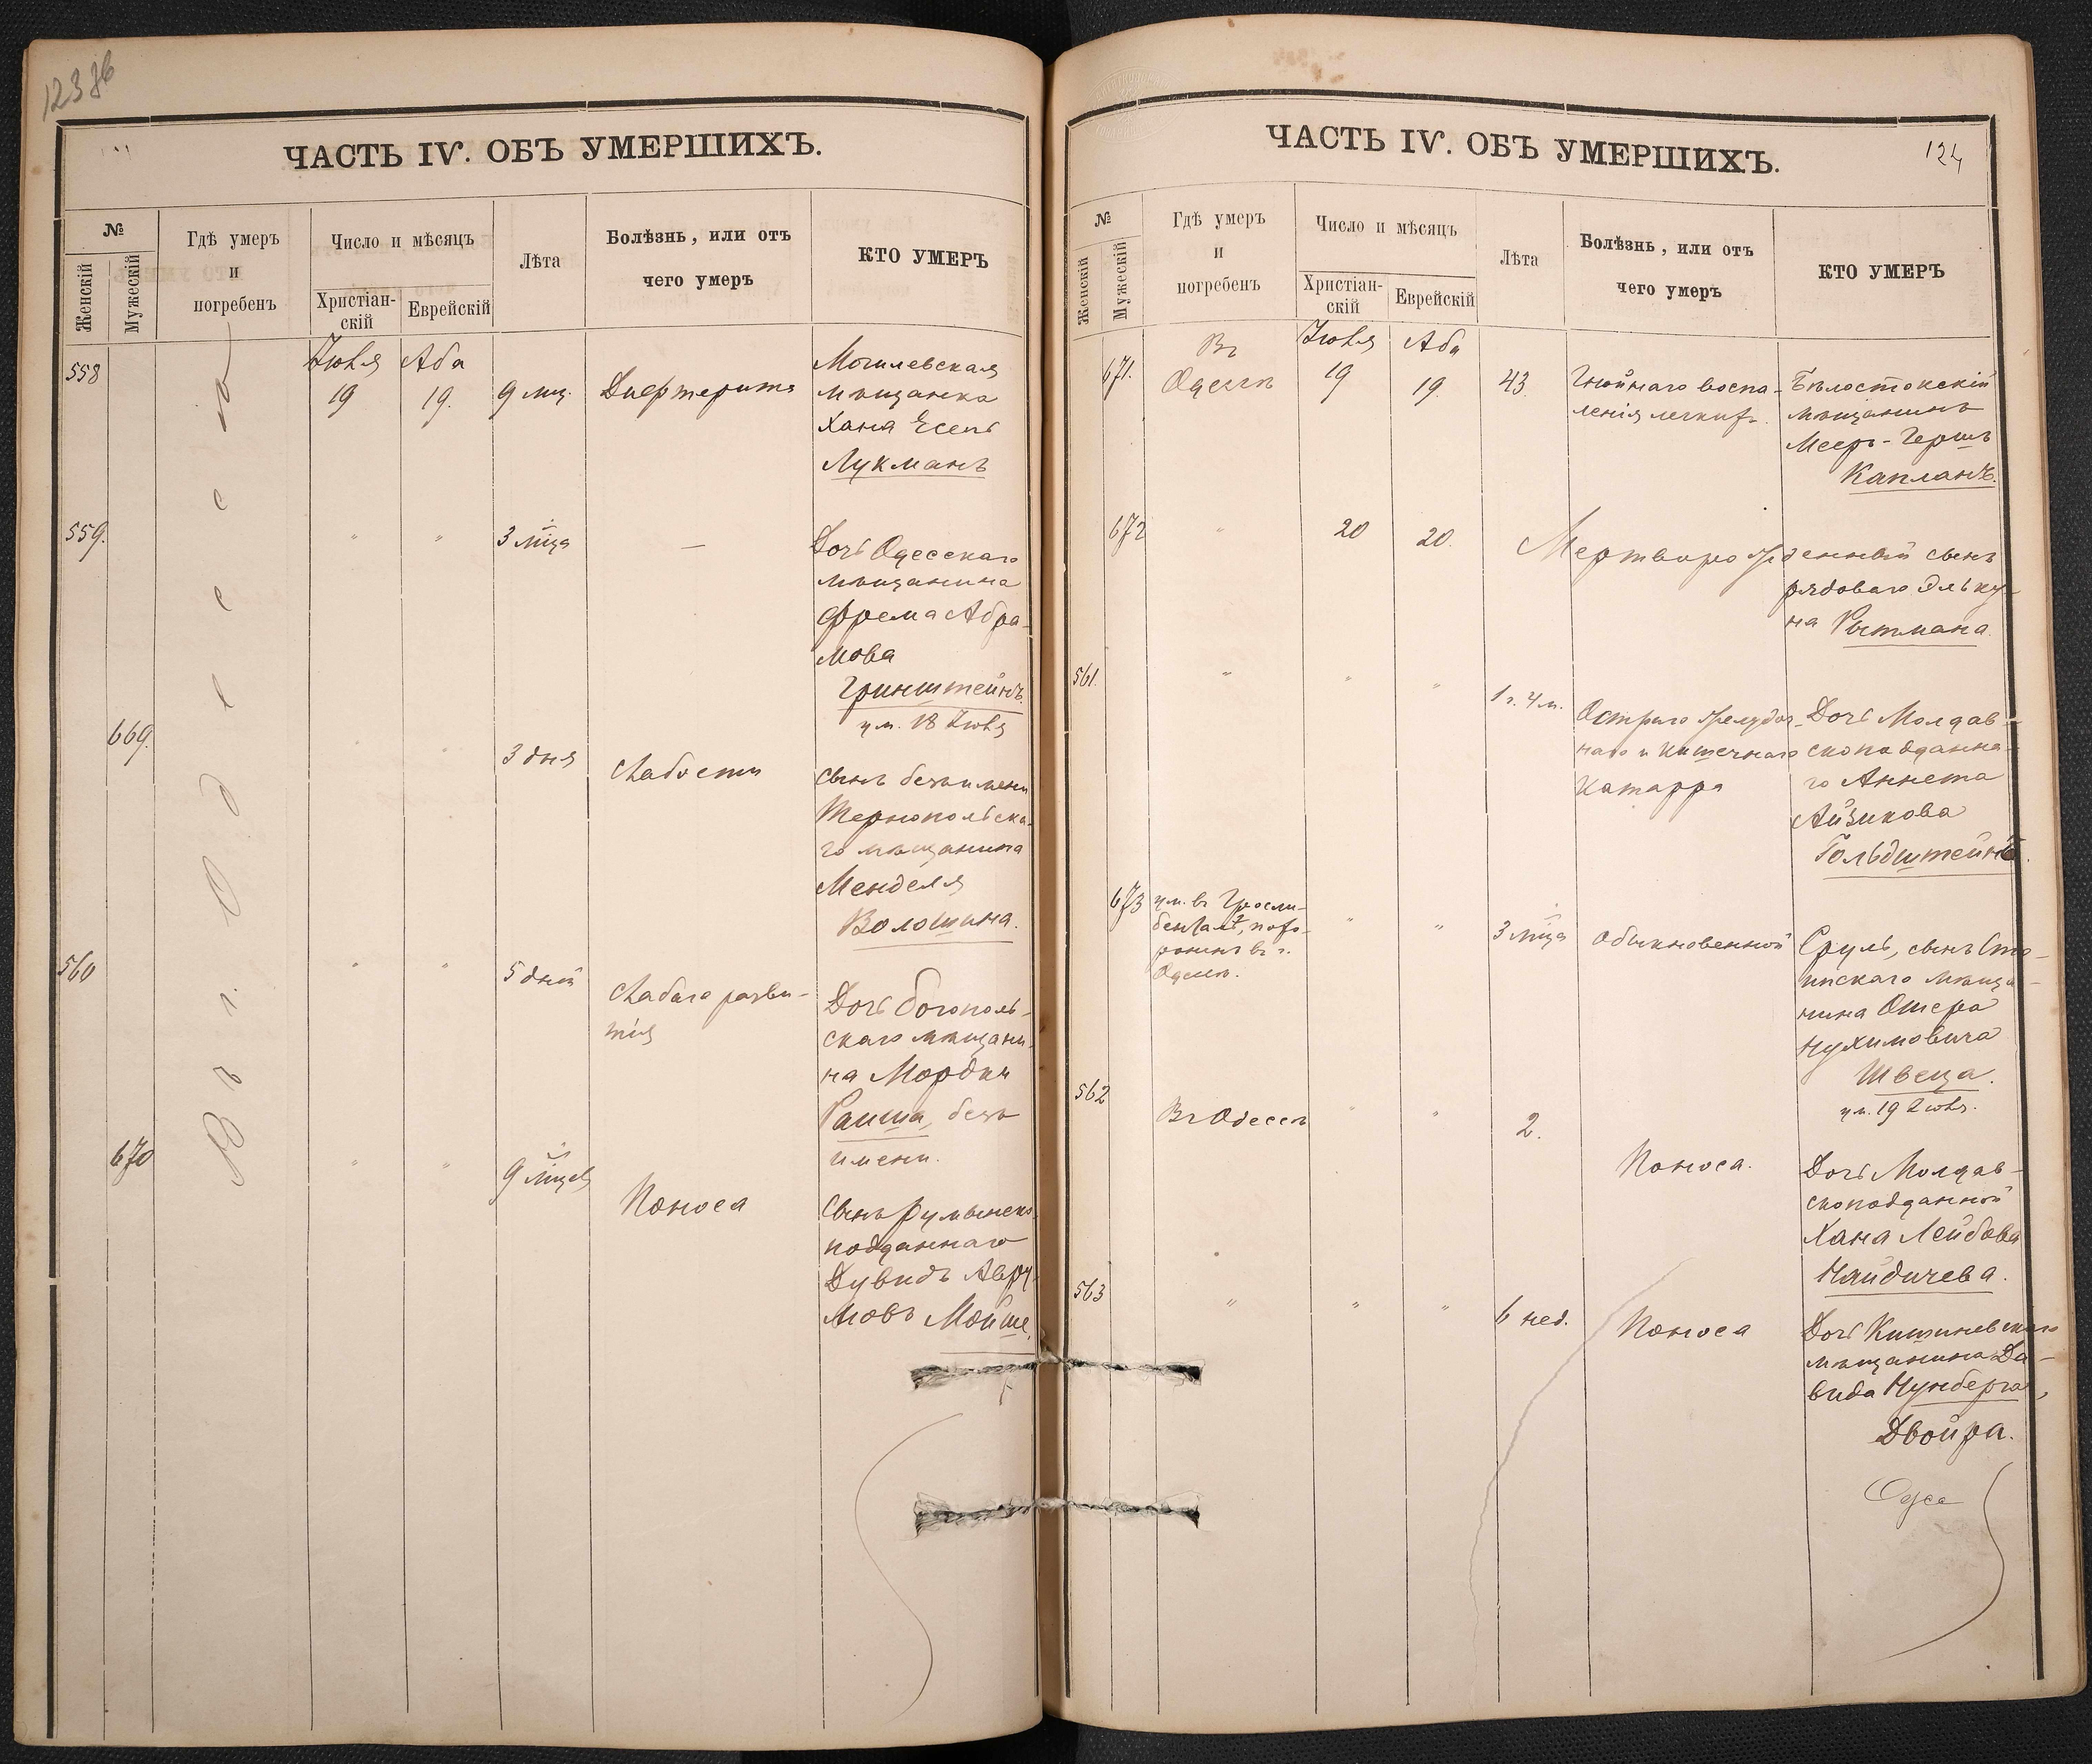 123 об
ЧАСТЬ IV. ОБЪ УМЕРШИХЪ.
№
Женскій
Мужескій
Гдѣ умеръ
и
погребенъ
Число и мѣсяцъ
Христіан-
скій
Еврейскій
Лѣта
Болѣзнь, или отъ
чего умеръ
КТО УМЕРЪ
Въ г. Одессѣ
Іюля Аба
558 19 19. 9 мц. Дифтерита
Могилевская
мѣщанка
Хана Есепъ
Лукманъ
559. " " 3 мѣца —
Дочь Одесскаго
мѣщанина
Фроема Абра-
мова
Гринштейнъ.
ум. 18 Іюля
669. " " 3 дня слабости
сынъ безъимени
Тернопольска-
го мѣщанина
Менделя
Волошина.
560 " " 5 дней слабаго разви-
тія
Дочь богополь-
скаго мѣщани-
на Мордки
Раиша, безъ
имени.
670 " " 9 мѣцевъ Поноса
Сынъ румынско-
подданнаго
Дувидъ Авру-
мовъ Мойше.
ЧАСТЬ IV. ОБЪ УМЕРШИХЪ.
124
№
Женскій
Мужескій
Гдѣ умеръ
и
погребенъ
Число и мѣсяцъ
Христіан-
скій
Еврейскій
Лѣта
Болѣзнь, или отъ
чего умеръ
КТО УМЕРЪ
Въ Іюля Аба
671. Одессѣ 19 19. 43. Гнойнаго воспа-
ленія легкихъ.
Бѣлостокскій
мѣщанинъ
Мееръ-Гершъ
Капланъ.
672 " 20 20. Мертворожденный сынъ
рядоваго Эльку-
на Ритмана.
561. " " " 1 г. 4 м. Остраго желудоч-
наго и кишечнаго
катарра
Дочь Молдав-
скоподданна-
го Аннета
Айзикова
Гольдштейнъ.
673 ум. в Гросли-
бенталѣ, похо-
роненъ въ г.
Одессѣ.
" " 3 мѣца обыкновенной
Сруль, сынъ
мѣща-
нина Ошера
Нухимовича
Швеца.
ум. 19 Іюля.
562 Въ Одессѣ " " 2. Поноса.
Дочь Молдав-
скоподданной
Хана Лейбова
Найдичева.
563 " " " 6 нед. Поноса
Дочь Кишиневскаго
мѣщанина Да-
вида Нунберга,
Двойра.